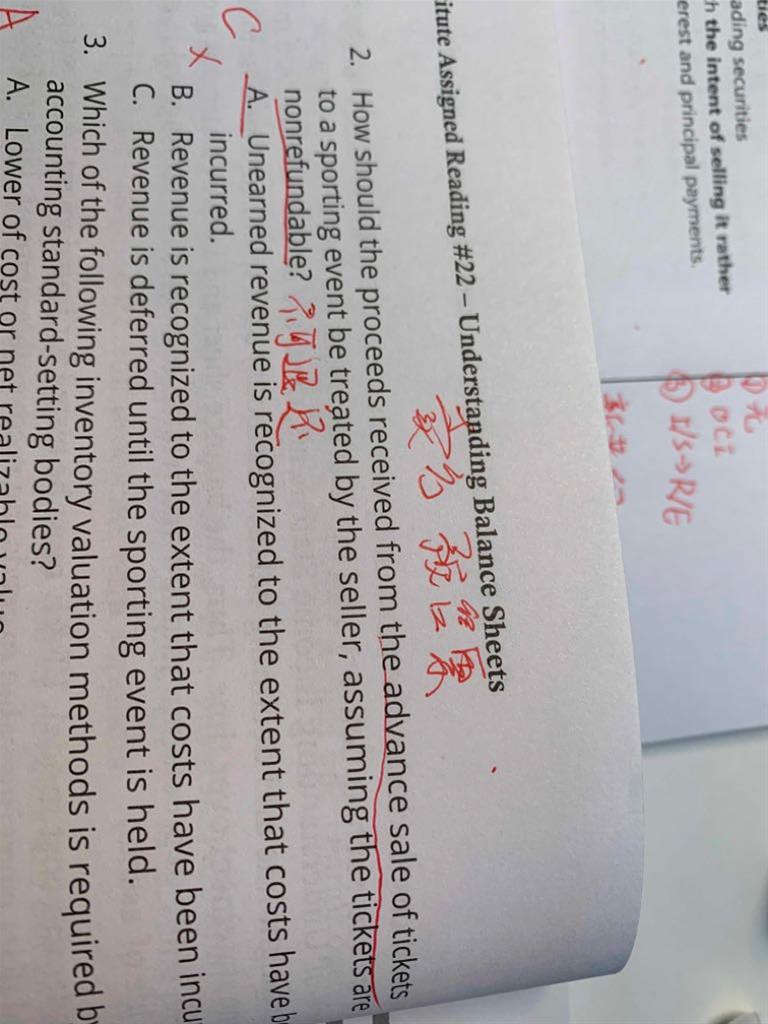 ties
ading securities
h the intent of selling it rather
erest and principal payments.
② OCI
③ I/S→R/E
itute Assigned Reading #22 – Understanding Balance Sheets
2. How should the proceeds received from the advance sale of tickets
to a sporting event be treated by the seller, assuming the tickets are
nonrefundable? 不可退还
C
A. Unearned revenue is recognized to the extent that costs have b
incurred.
X
B. Revenue is recognized to the extent that costs have been incu
C. Revenue is deferred until the sporting event is held.
3. Which of the following inventory valuation methods is required by
accounting standard-setting bodies?
A
A. Lower of cost or net realizable value